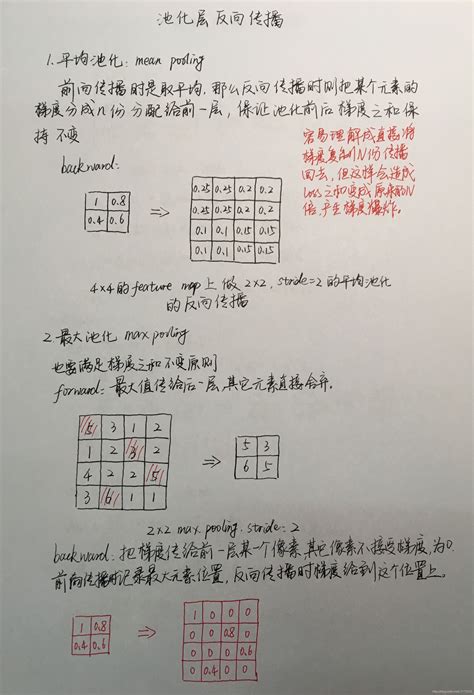 池化层反向传播
1.平均池化: mean pooling
前向传播时是取平均,那么反向传播时则把某个元素的
梯度分成n份分配给前一层,保证池化前后梯度之和保
持不变
容易理解成直接将
梯度复制N份传播
回去,但这样会造成
loss之和变成原来的N
倍,产生梯度爆炸。
backward:
1 0.8
0.4 0.6
⇒
0.25 0.25 0.2 0.2
0.25 0.25 0.2 0.2
0.1 0.1 0.15 0.15
0.1 0.1 0.15 0.15
4×4的feature map上做2×2, stride=2的平均池化
的反向传播
2.最大池化 max pooling
也要满足梯度之和不变原则
forward: 最大值传给后一层,其它元素直接舍弃.
5 3 1 2
1 2 3 2
4 2 2 5
3 6 1 1
⇒
5 3
6 5
2×2 max pooling. stride: 2
backward: 把梯度传给前一层某一个像素,其它像素不接受梯度,为0.
前向传播时记录最大元素位置,反向传播时梯度给到这个位置上。
1 0.8
0.4 0.6
⇒
1 0 0 0
0 0 0.8 0
0 0 0 0.6
0 0.4 0 0